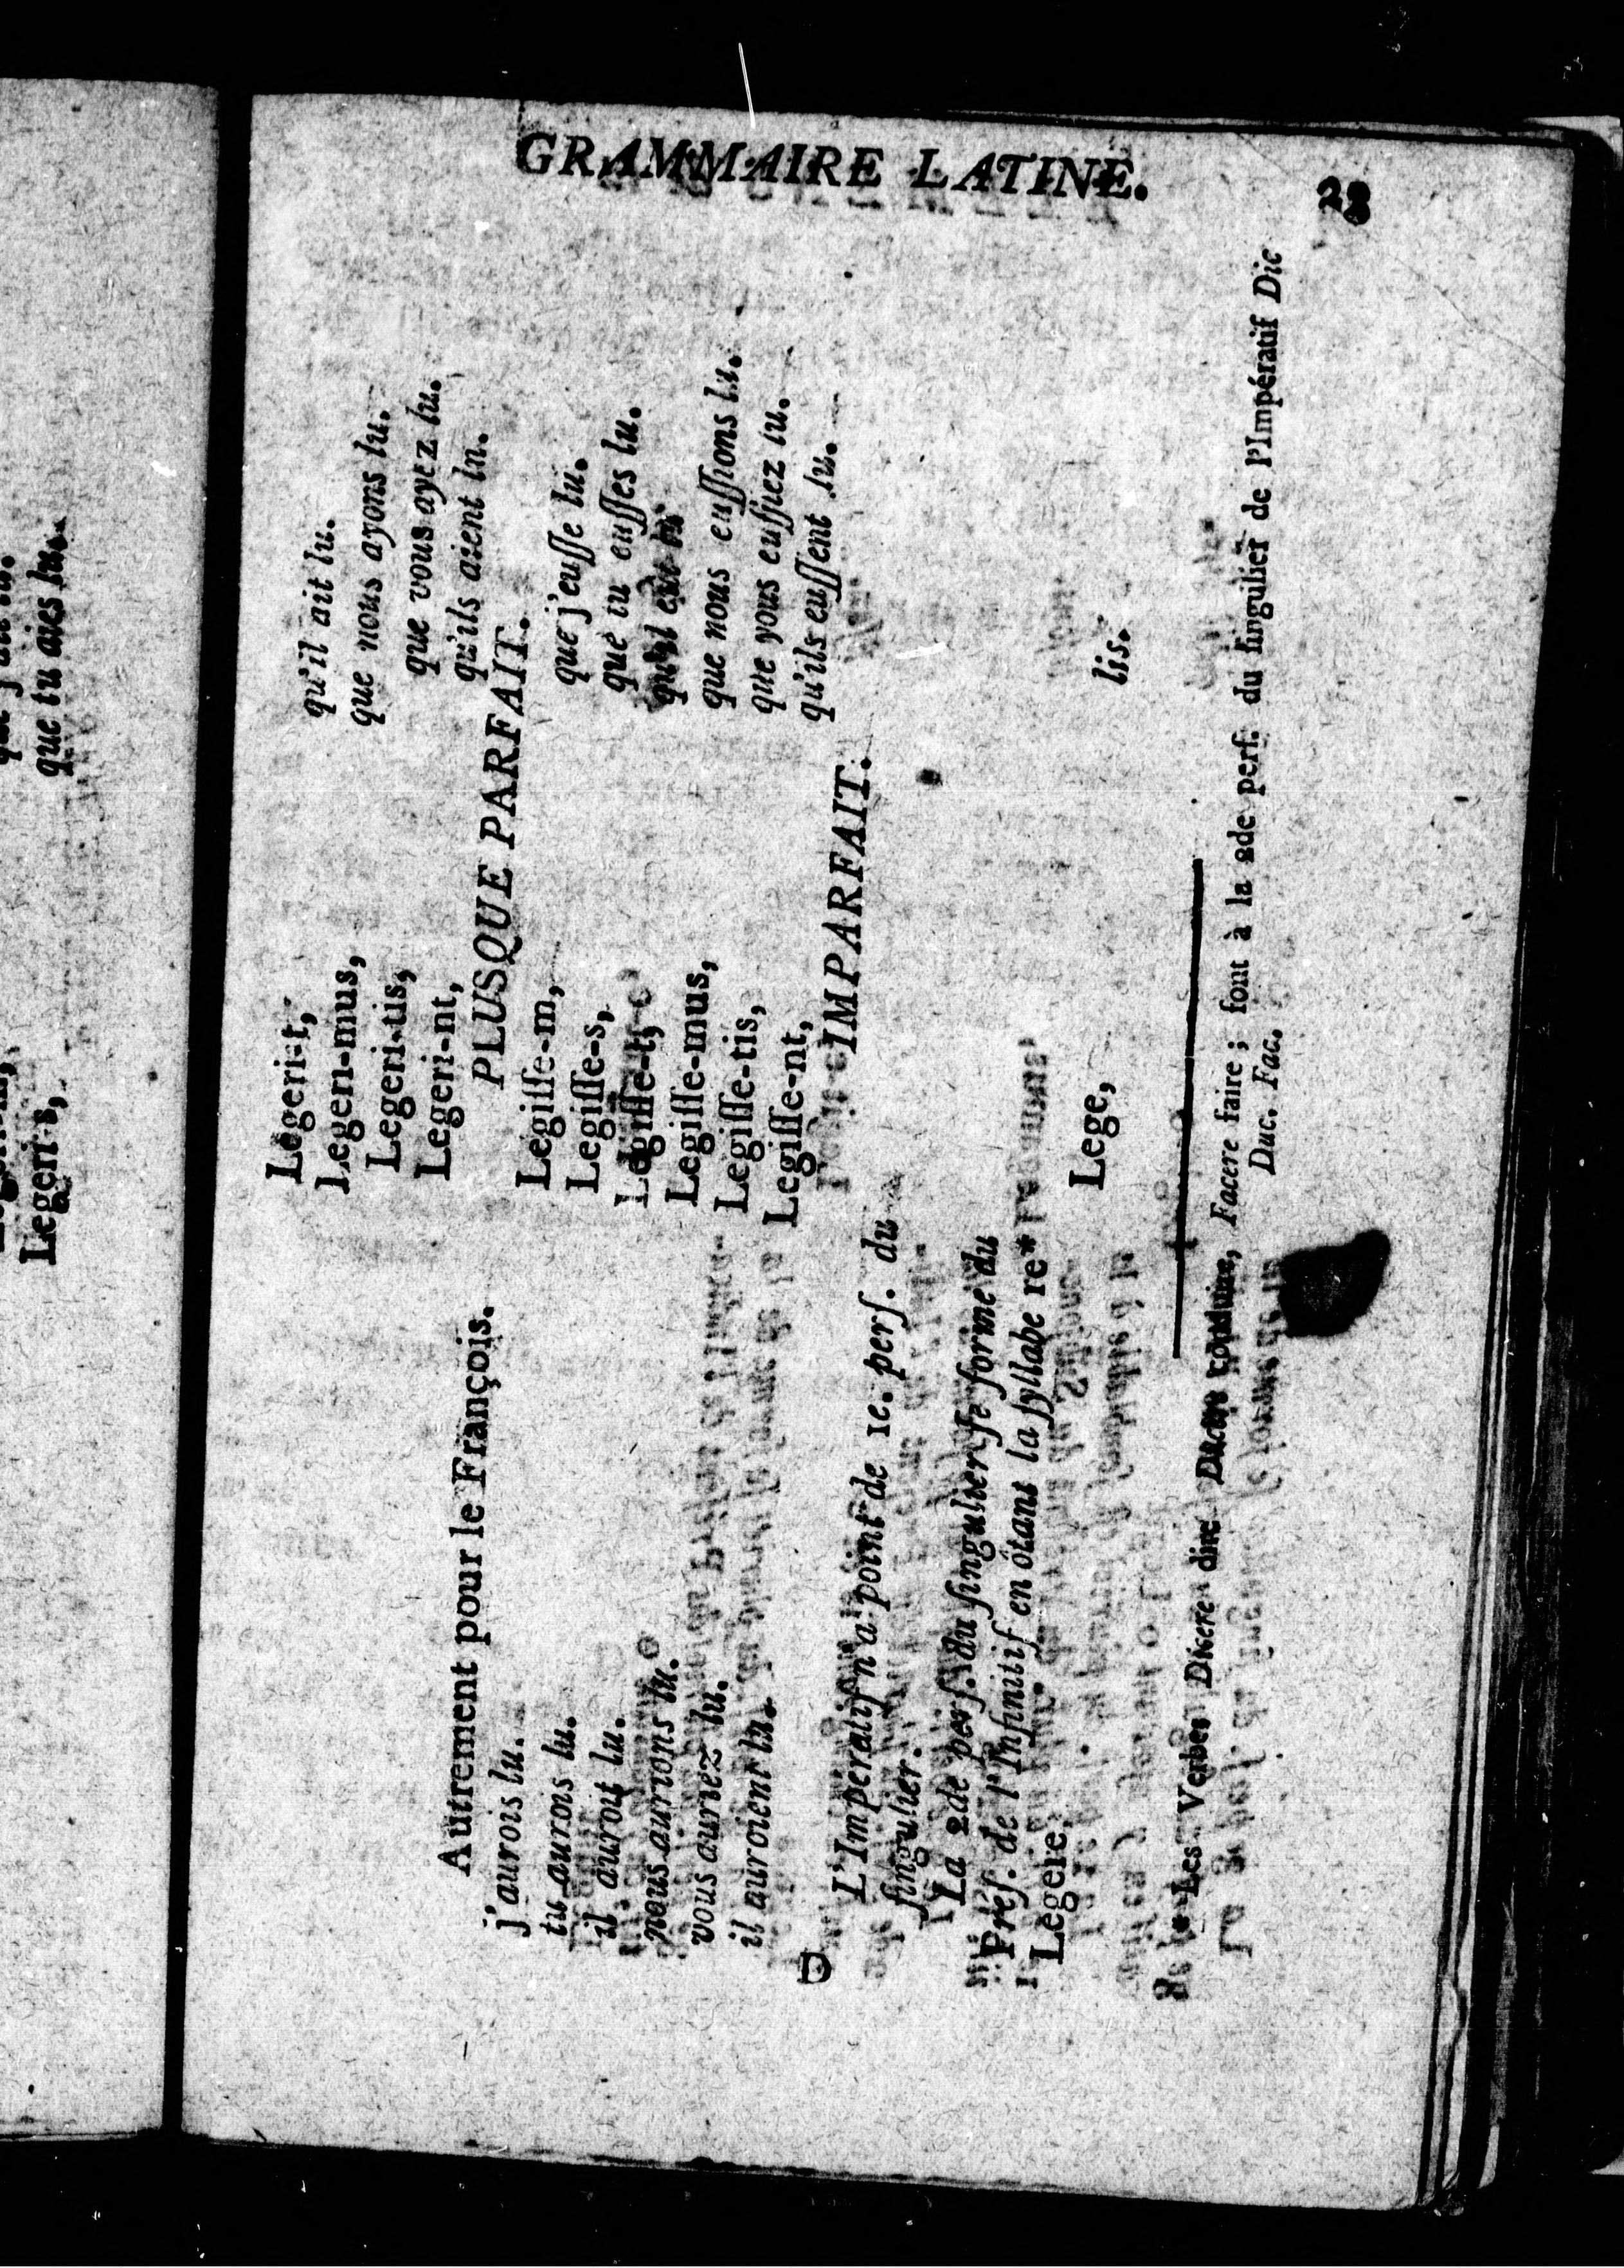 GRAMMAIRE LATINE. 23
que tu aies lu.
Legeri-s,
Legeri-t, qu'il ait lu.
Legeri-mus, que nous ayons lu.
Legeri-tis, que vous ayez lu.
Legeri-nt, qu'ils aient ln.
PLUSQUE PARFAIT.
Autrement pour le François.
j'aurois lu. Legiſſe-m, que j'euſſe lu.
tu aurois lu. Legiſſe-s, que tu euſſes lu.
il auroit lu. Legiſſe-t, qu'il eut lu
nous aurions lu. Legiſſe-mus, que nous euſſions lu.
vous auriez lu. Legiſſe-tis, que vous euſſiez lu.
il auroient lu. Legiſſe-nt, qu'ils euſſent lu.
D
IMPARFAIT.
L'Imperatif n'a point de 1e. perſ. du
ſingulier.
La 2de perſ. du ſingulier ſe forme du
Préſ. de l'Infinitif en ôtant la ſyllabe re*
Legere, Lege, lis.
* Les Verbes Dicere dire Ducere conduire, Facere faire ; font à la 2de perſ. du ſingulier de l'Impératif Dic
Duc. Fac.